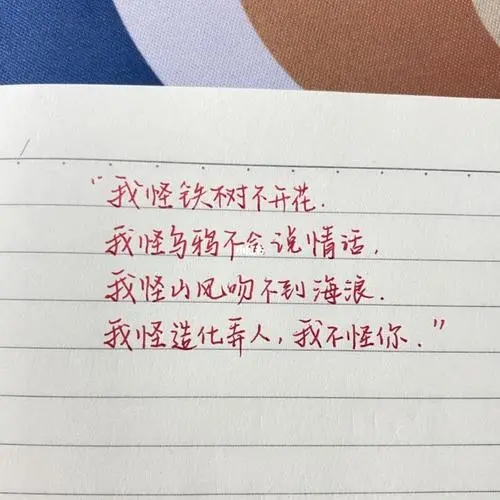 “我怪铁树不开花.
我怪乌鸦不会说情话.
我怪山风吻不到海浪.
我怪造化弄人，我不怪你.”